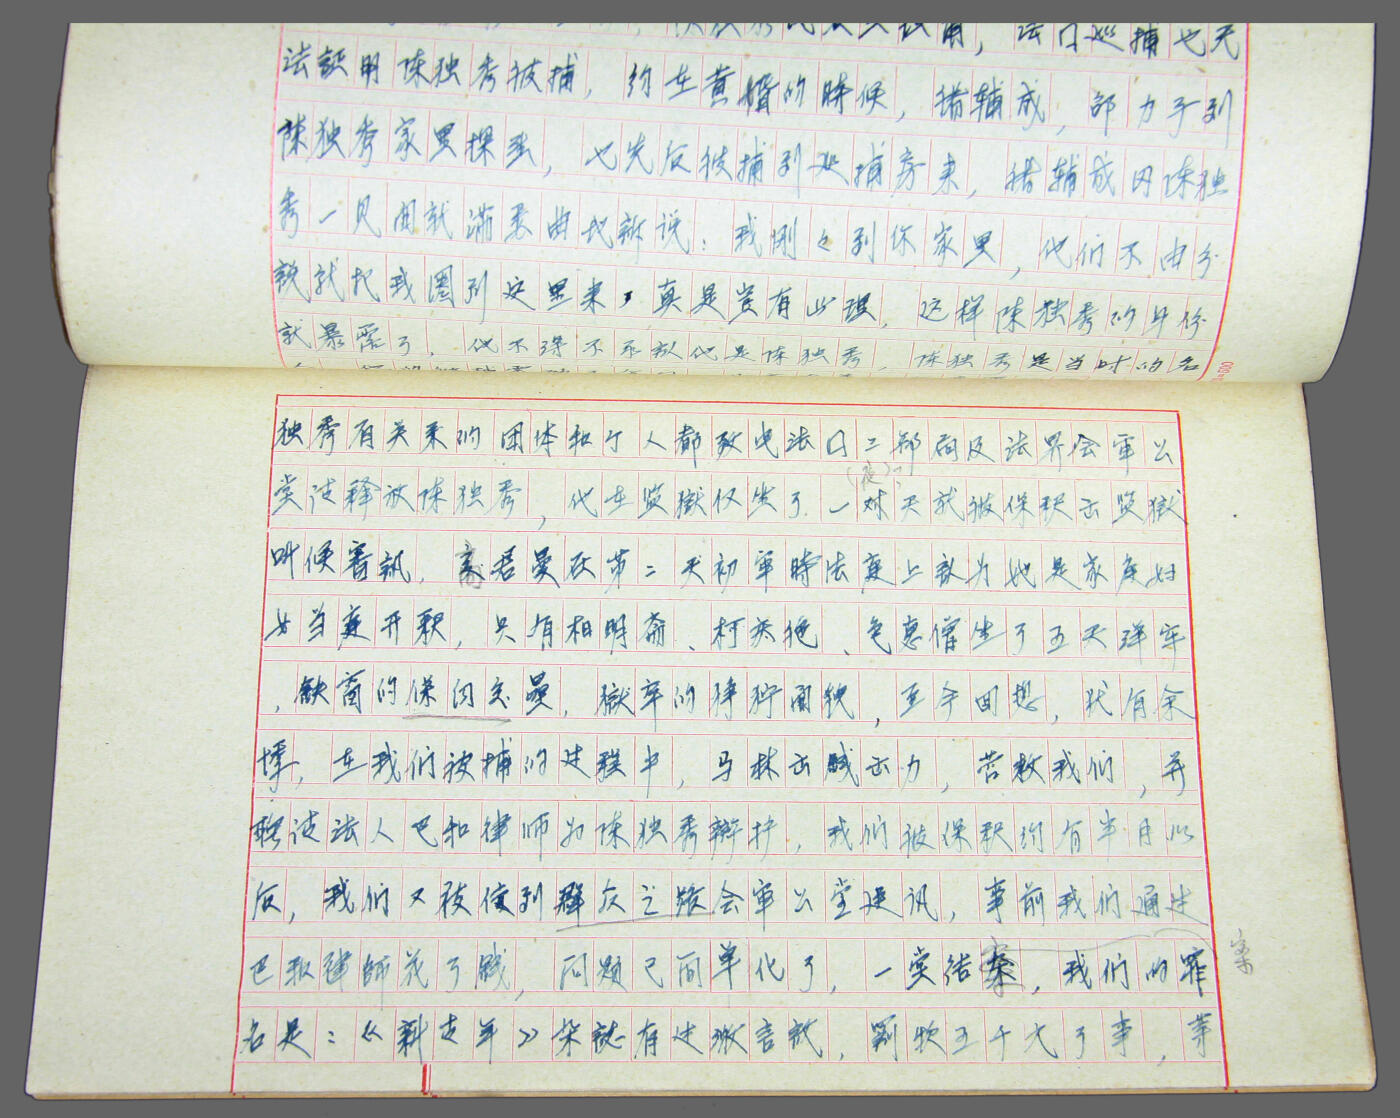 法證明陈独秀被捕，约在黄婚的時候，褚辅成，邵力子到
陈独秀家里探張，也先后被捕到巡捕房来，褚辅成同陈独
秀一见面就满喪曲地新说：我刚々到你家里，他们不由分
说就把我圈到这里来，真是岂有此理，这样陈独秀的身份
就暴露了，他不得不承认他是陈独秀，陈独秀是当时的名
独秀有关系的团体和个人都致电法口二部向及法界会审公
堂请釋放陈独秀，他在监獄仅坐了一(夜)天就被保釈出监獄
叫候審訊，高君曼在第二天初審時法庭上认为她是家庭妇
女当庭开釈，只有相明斋、柯庆施、包惠僧坐了五天洋牢
，铁窗的保向交曼，獄卒的狰狞面貌，至今回想，犹有余
悸，在我们被捕的过程中，马林出賊出力，营救我们，并
聘请法人巴和律师为陈独秀辩护，我们被保釈约有半月以
后，我们又被传到群众之路会审公堂廷讯，事前我们通过
巴和律師花了賊，问题已简單化了，一堂结案，我们的罪
案
名是：《新青年》杂誌有过激言放，罰款五千大了事，等